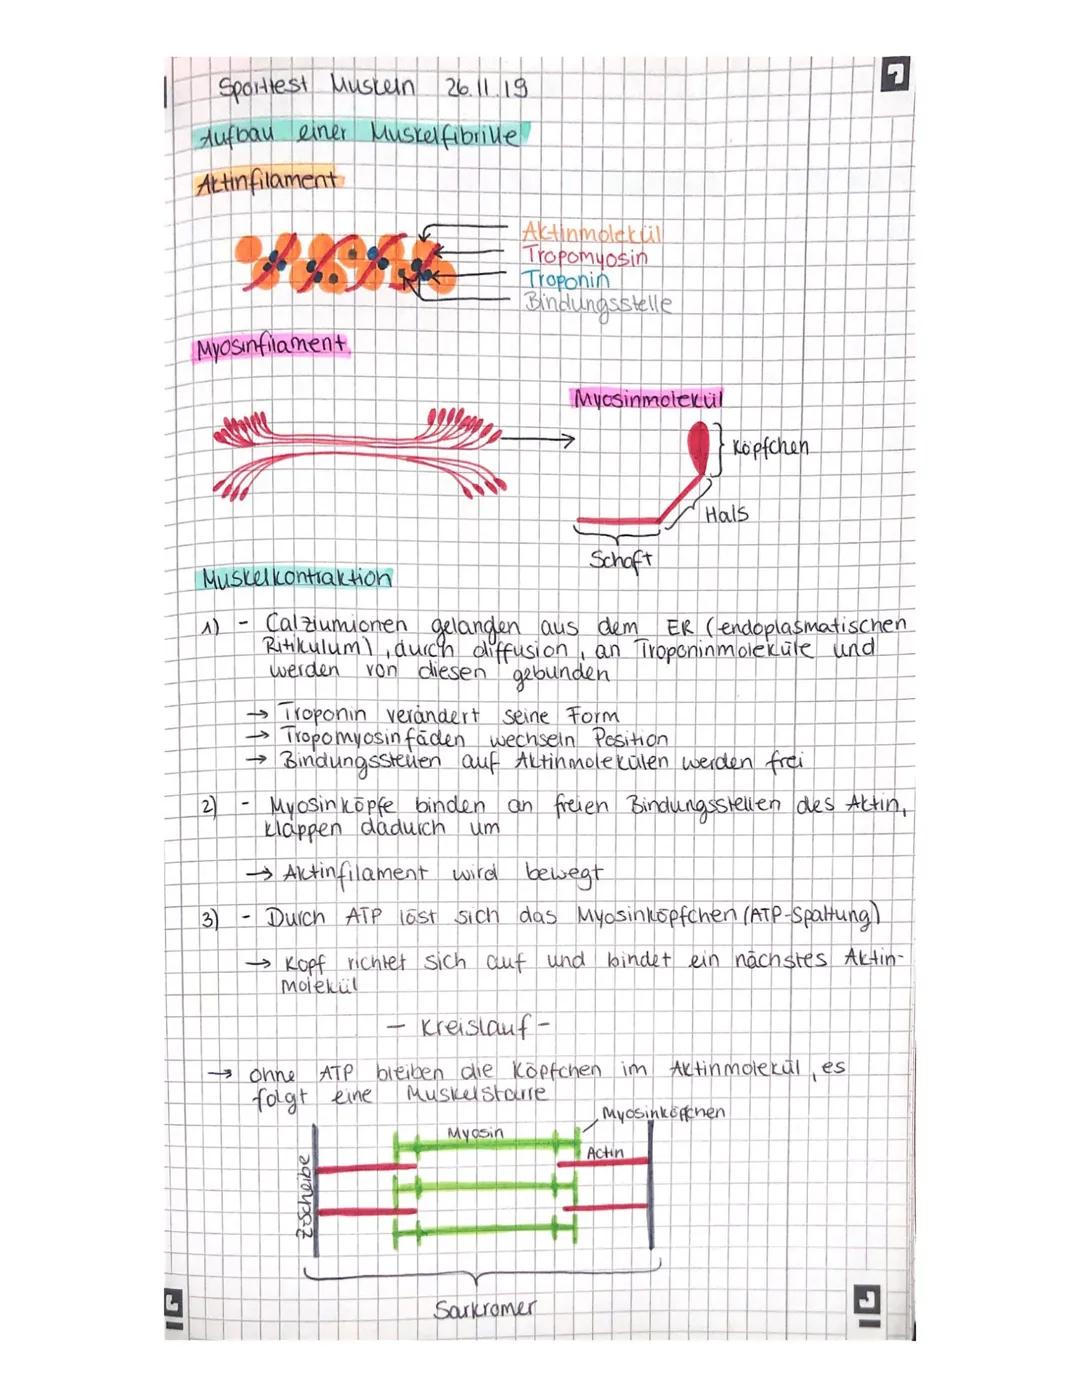 Sporttest Muskeln 26.11.19
Aufbau einer Muskelfibrille
Aktinfilament
Aktinmolekül
Tropomyosin
Troponin
Bindungsstelle
Myosinfilament
Myosinmolekül
Köpfchen
Hals
Schaft
Muskelkontraktion
1) - Calziumionen gelangen aus dem ER (endoplasmatischen
Ritikulum), durch diffusion, an Troponinmoleküle und
werden von diesen gebunden
→ Troponin verändert seine Form
→ Tropomyosinfäden wechseln Position
→ Bindungsstellen auf Aktinmolekülen werden frei
2) - Myosinköpfe binden an freien Bindungsstellen des Aktin,
klappen dadurch um
→ Aktinfilament wird bewegt
3) - Durch ATP löst sich das Myosinköpfchen (ATP-Spaltung)
→ Kopf richtet sich auf und bindet ein nächstes Aktin-
molekül
- Kreislauf -
→ ohne ATP bleiben die Köpfchen im Aktinmolekül, es
folgt eine Muskelstarre
Myosinköpfchen
Myosin
Actin
Z-Scheibe
Sarkromer